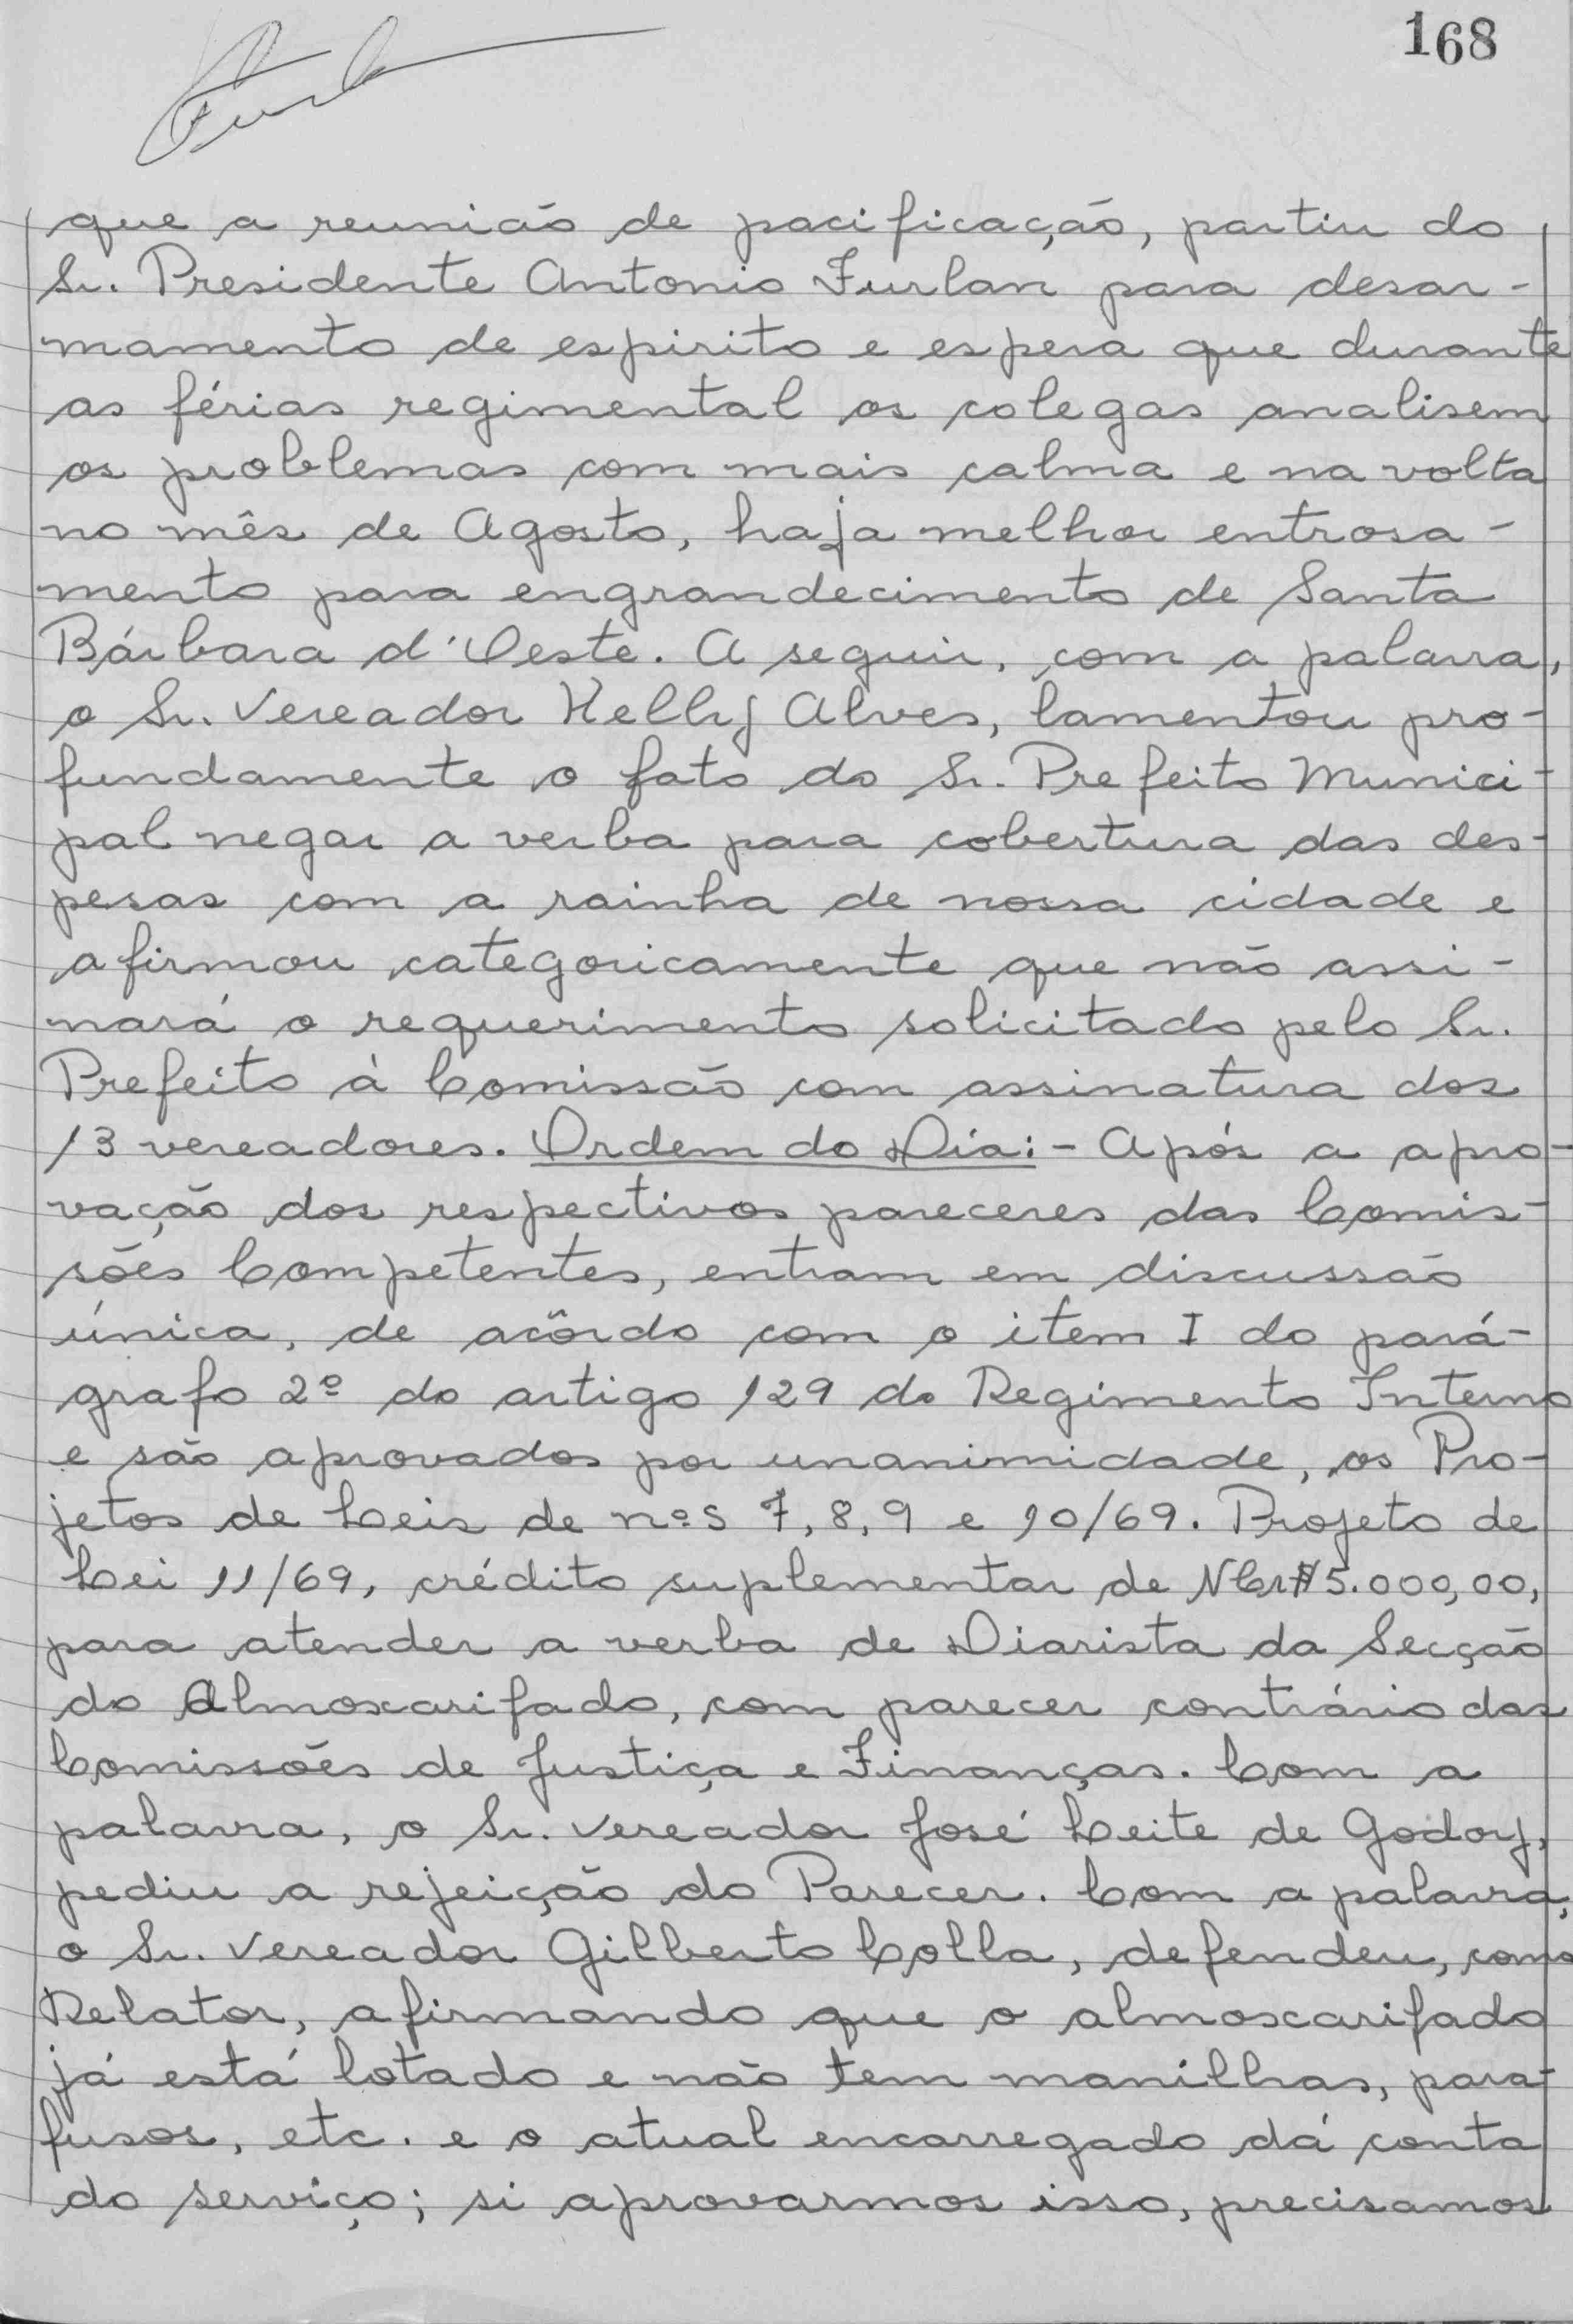 168
que a reunião de pacificação, partiu do
Sr. Presidente Antonio Furlan para desar-
mamento de espirito e espera que durante
as férias regimental os colegas analisem
os problemas com mais calma e na volta
no mês de Agosto, haja melhor entrosa-
mento para engrandecimento de Santa
Bárbara d'Oeste. A seguir, com a palavra,
o Sr. Vereador Kelly Alves, lamentou pro-
fundamente o fato do Sr. Prefeito Munici-
pal negar a verba para cobertura das des-
pesas com a rainha de nossa cidade e
afirmou categoricamente que não assi-
nará o requerimento solicitado pelo Sr.
Prefeito à Comissão com assinatura dos
13 vereadores. Ordem do Dia:- Após a apro-
vação dos respectivos pareceres das Comis-
sões Competentes, entram em discussão
única, de acôrdo com o item I do pará-
grafo 2º do artigo 129 do Regimento Interno
e são aprovados por unanimidade, os Pro-
jetos de Leis de nºs 7, 8, 9 e 10/69. Projeto de
Lei 11/69, crédito suplementar de NCr$ 5.000,00,
para atender a verba de Diarista da Secção
do Almoxarifado, com parecer contrário das
Comissões de Justiça e Finanças. Com a
palavra, o Sr. Vereador José Leite de Godoy,
pediu a rejeição do Parecer. Com a palavra,
o Sr. Vereador Gilberto Colla, defendeu, como
Relator, afirmando que o almoxarifado
já está lotado e não tem manilhas, para-
fusos, etc. e o atual encarregado dá conta
do serviço; si aprovarmos isso, precisamos